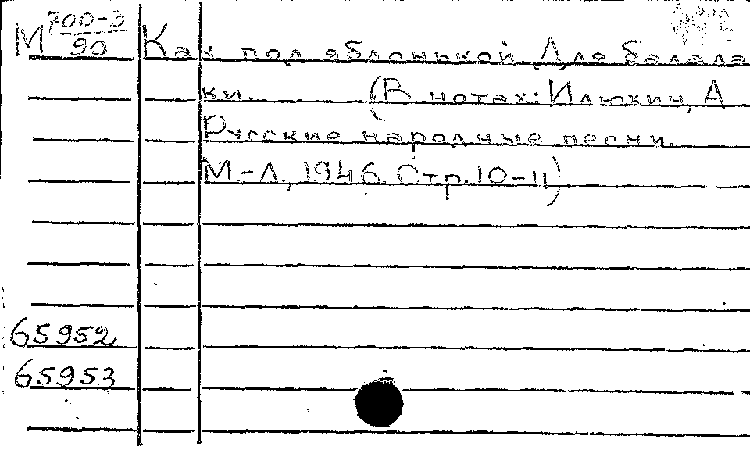 М 700-3/90 Как под яблонькой. Для балала
ки. (В нотах: Илюхин, А
Русские народные песни.
М-Л., 1946. Стр. 10-11)
65952
65953